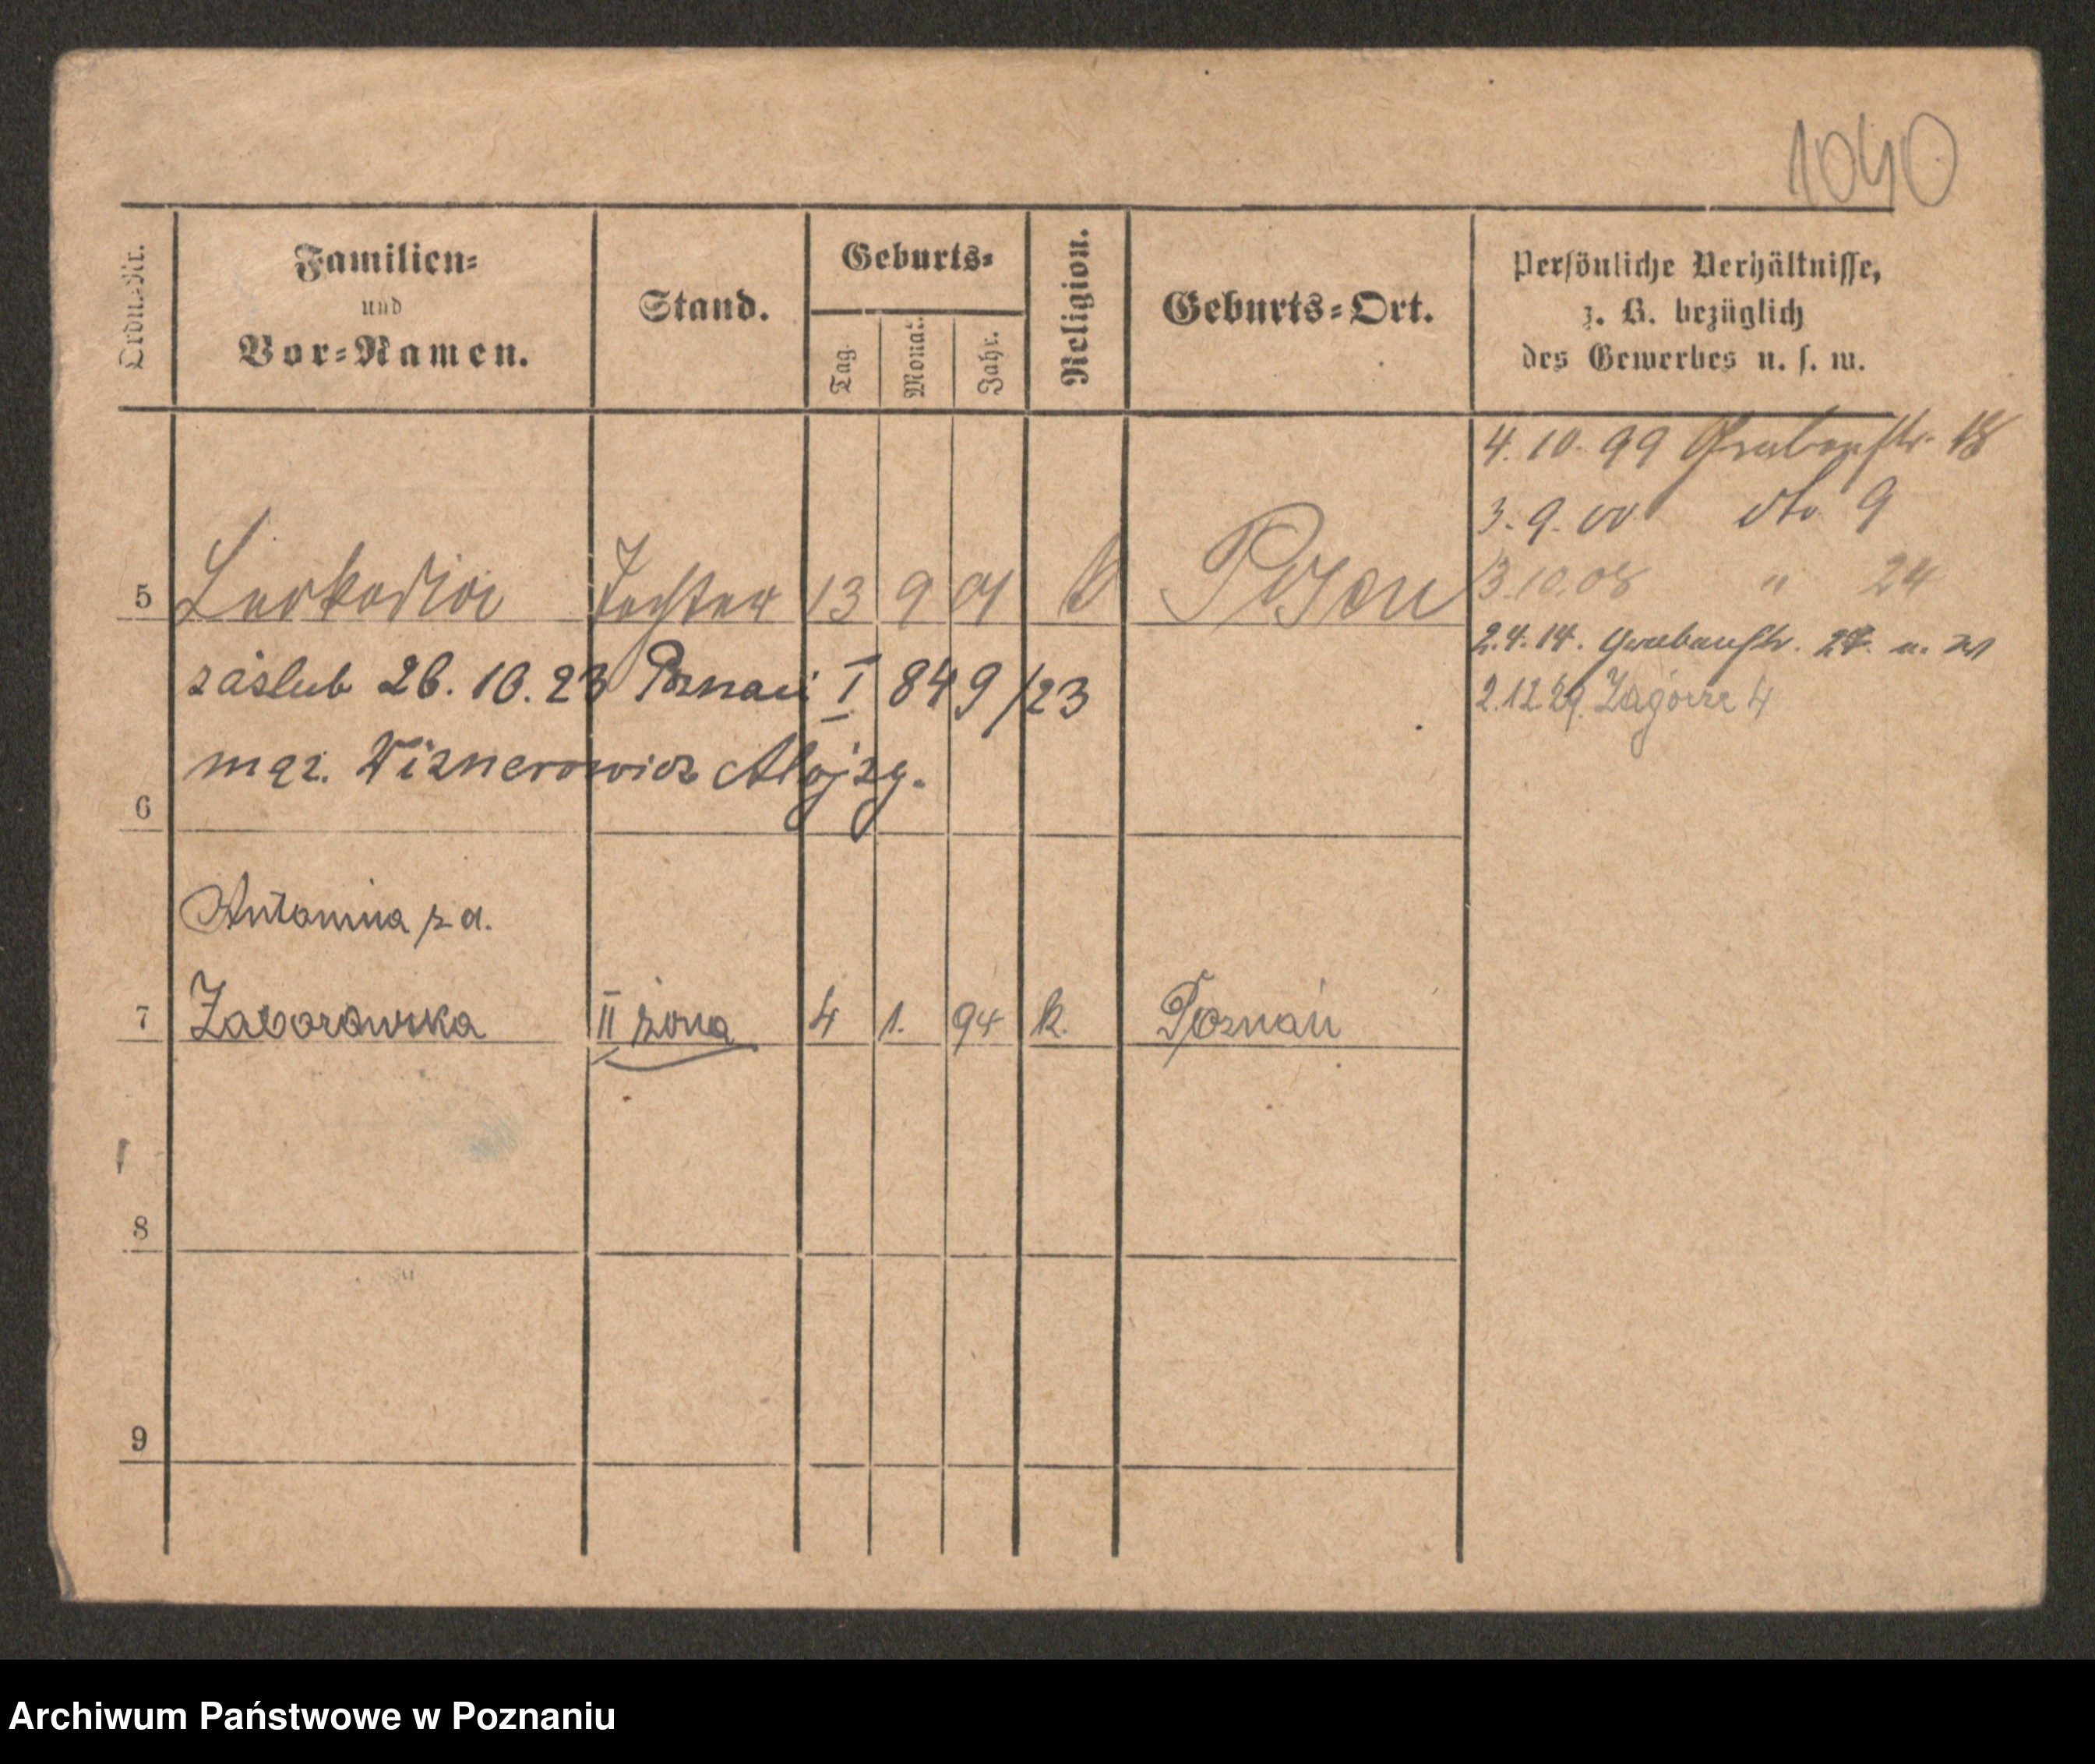 1040
Ordn.-Nr.
Familien-
und
Vor-Namen.
Stand.
Geburts-
Tag.
Monat.
Jahr.
Religion.
Geburts-Ort.
Persönliche Verhältnisse,
z. B. bezüglich
des Gewerbes u. s. w.
4. 10. 99 Grabenstr. 18
3. 9. 00 dto 9
13.10.08 " 24
2.4.14. Grabenstr. 27. u.
2.12.29. Zagórze 4
5 Leokadia Tochter 13 9 01 k Posen
zaślub 26. 10. 23 Poznań I 849/23
mgr. Wiznerowicz Alojzy.
6
Antonina z d.
7 Zaborowska II żona 4 1. 94 k. Poznań
8
9
Archiwum Państwowe w Poznaniu